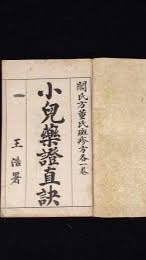 閻氏方董氏斑疹方各一卷
小兒藥證直訣
一
王浩署